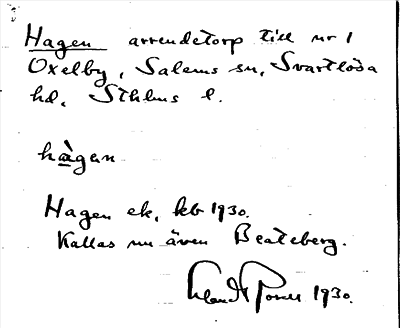 Hagen arrendetorp till nr 1
Oxelby, Salems sn, Svartlösa
hd, Sthlms l.
hàgen
Hagen ek, kb 1930.
Kallas nu även Beateberg.
1930.